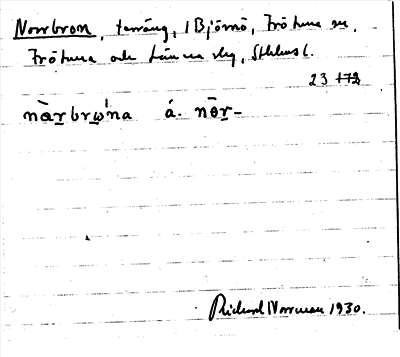 Norrbron, terräng, i Björnö, Frötuna sn,
Frötuna och Länna slg, Sthlms l.
23 +72
nὰr̲brώ̲na á. nōr̲–
Richard Norrman 1930.